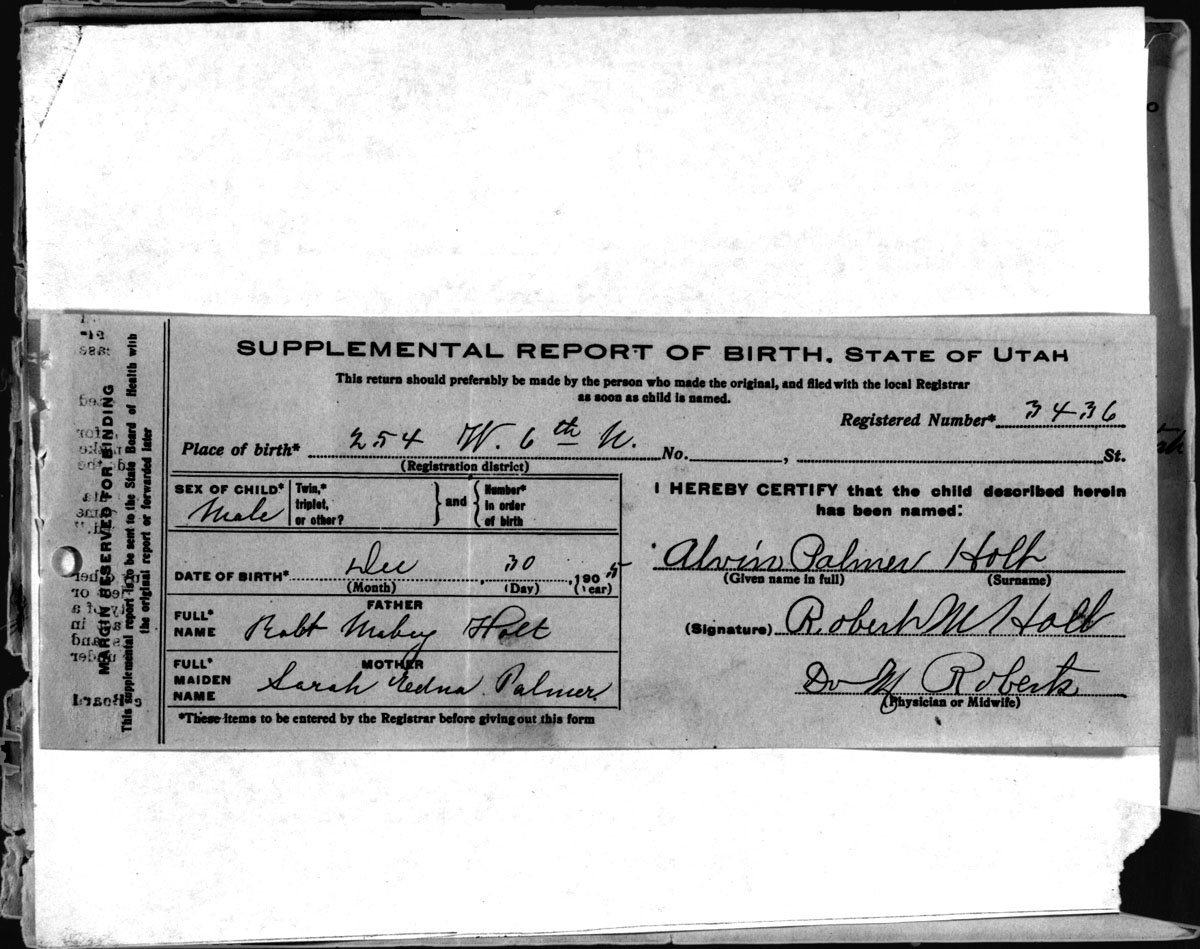 SUPPLEMENTAL REPORT OF BIRTH, STATE OF UTAH
This return should preferably be made by the person who made the original, and filed with the local Registrar
as soon as child is named.
Registered Number* 3436
Place of birth* 254 W. 6th N. No. , St.
(Registration district)
SEX OF CHILD* Male
Twin,* triplet, or other?
and
Number* in order of birth
DATE OF BIRTH* Dec 30, 1905
(Month) (Day) (Year)
FATHER
FULL* NAME Robt Mabey Holt
MOTHER
FULL* MAIDEN NAME Sarah Edna Palmer
*These items to be entered by the Registrar before giving out this form
I HEREBY CERTIFY that the child described herein
has been named:
Alvin Palmer Holt
(Given name in full) (Surname)
(Signature) Robert M Holt
Dr M Roberts
(Physician or Midwife)
MARGIN RESERVED FOR BINDING
This supplemental report is to be sent to the State Board of Health with
the original report or forwarded later